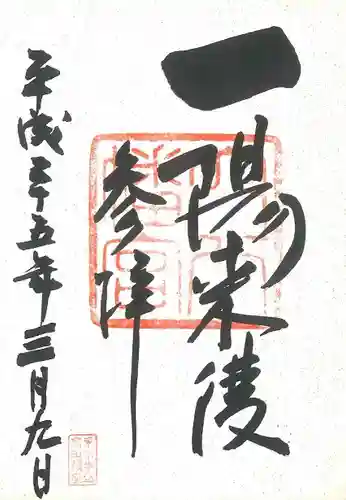 一陽来復
参拝
平成二十五年三月九日